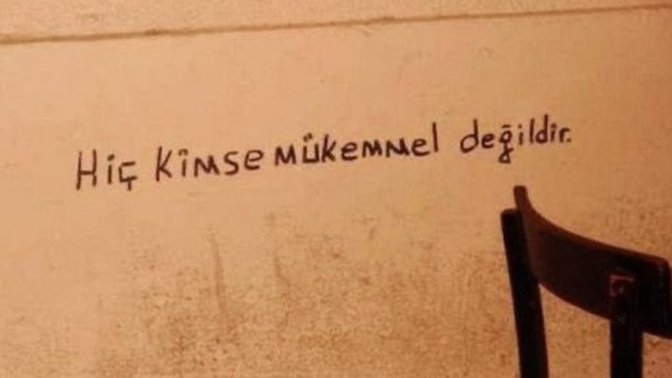 Hiç kimse mükemmel değildir.